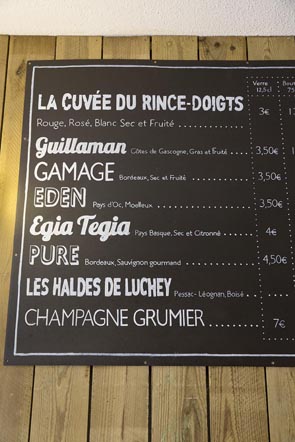 Verre
12,5cl
LA CUVÉE DU RINCE-DOIGTS
Rouge, Rosé, Blanc Sec et Fruité 3€
Guillaman Côtes de Gascogne, Gras et Fruité 3,50€
GAMAGE Bordeaux, Sec et Fruité
EDEN Pays d'Oc, Moelleux 3,50€
Egia Tegia Pays Basque, Sec et Citronné 4€
PURE Bordeaux, Sauvignon gourmand 4,50€
LES HALDES DE LUCHEY Pessac-Léognan, Boisé
CHAMPAGNE GRUMIER 7€